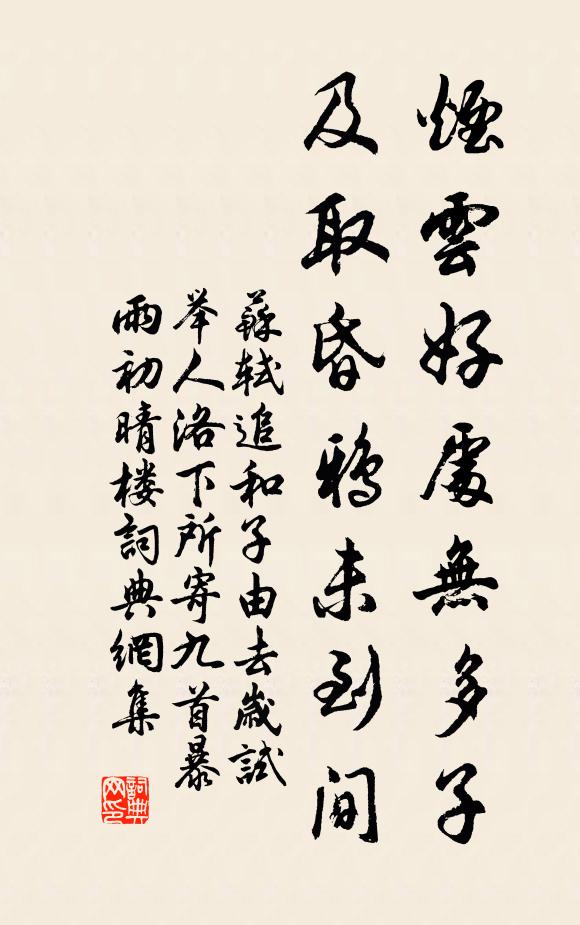 煙雲好處無多子
及取昏鴉未到间
蘇軾追和子由去歲試
举人洛下所寄九首暴
雨初晴楼詞典網集
詞典
网印